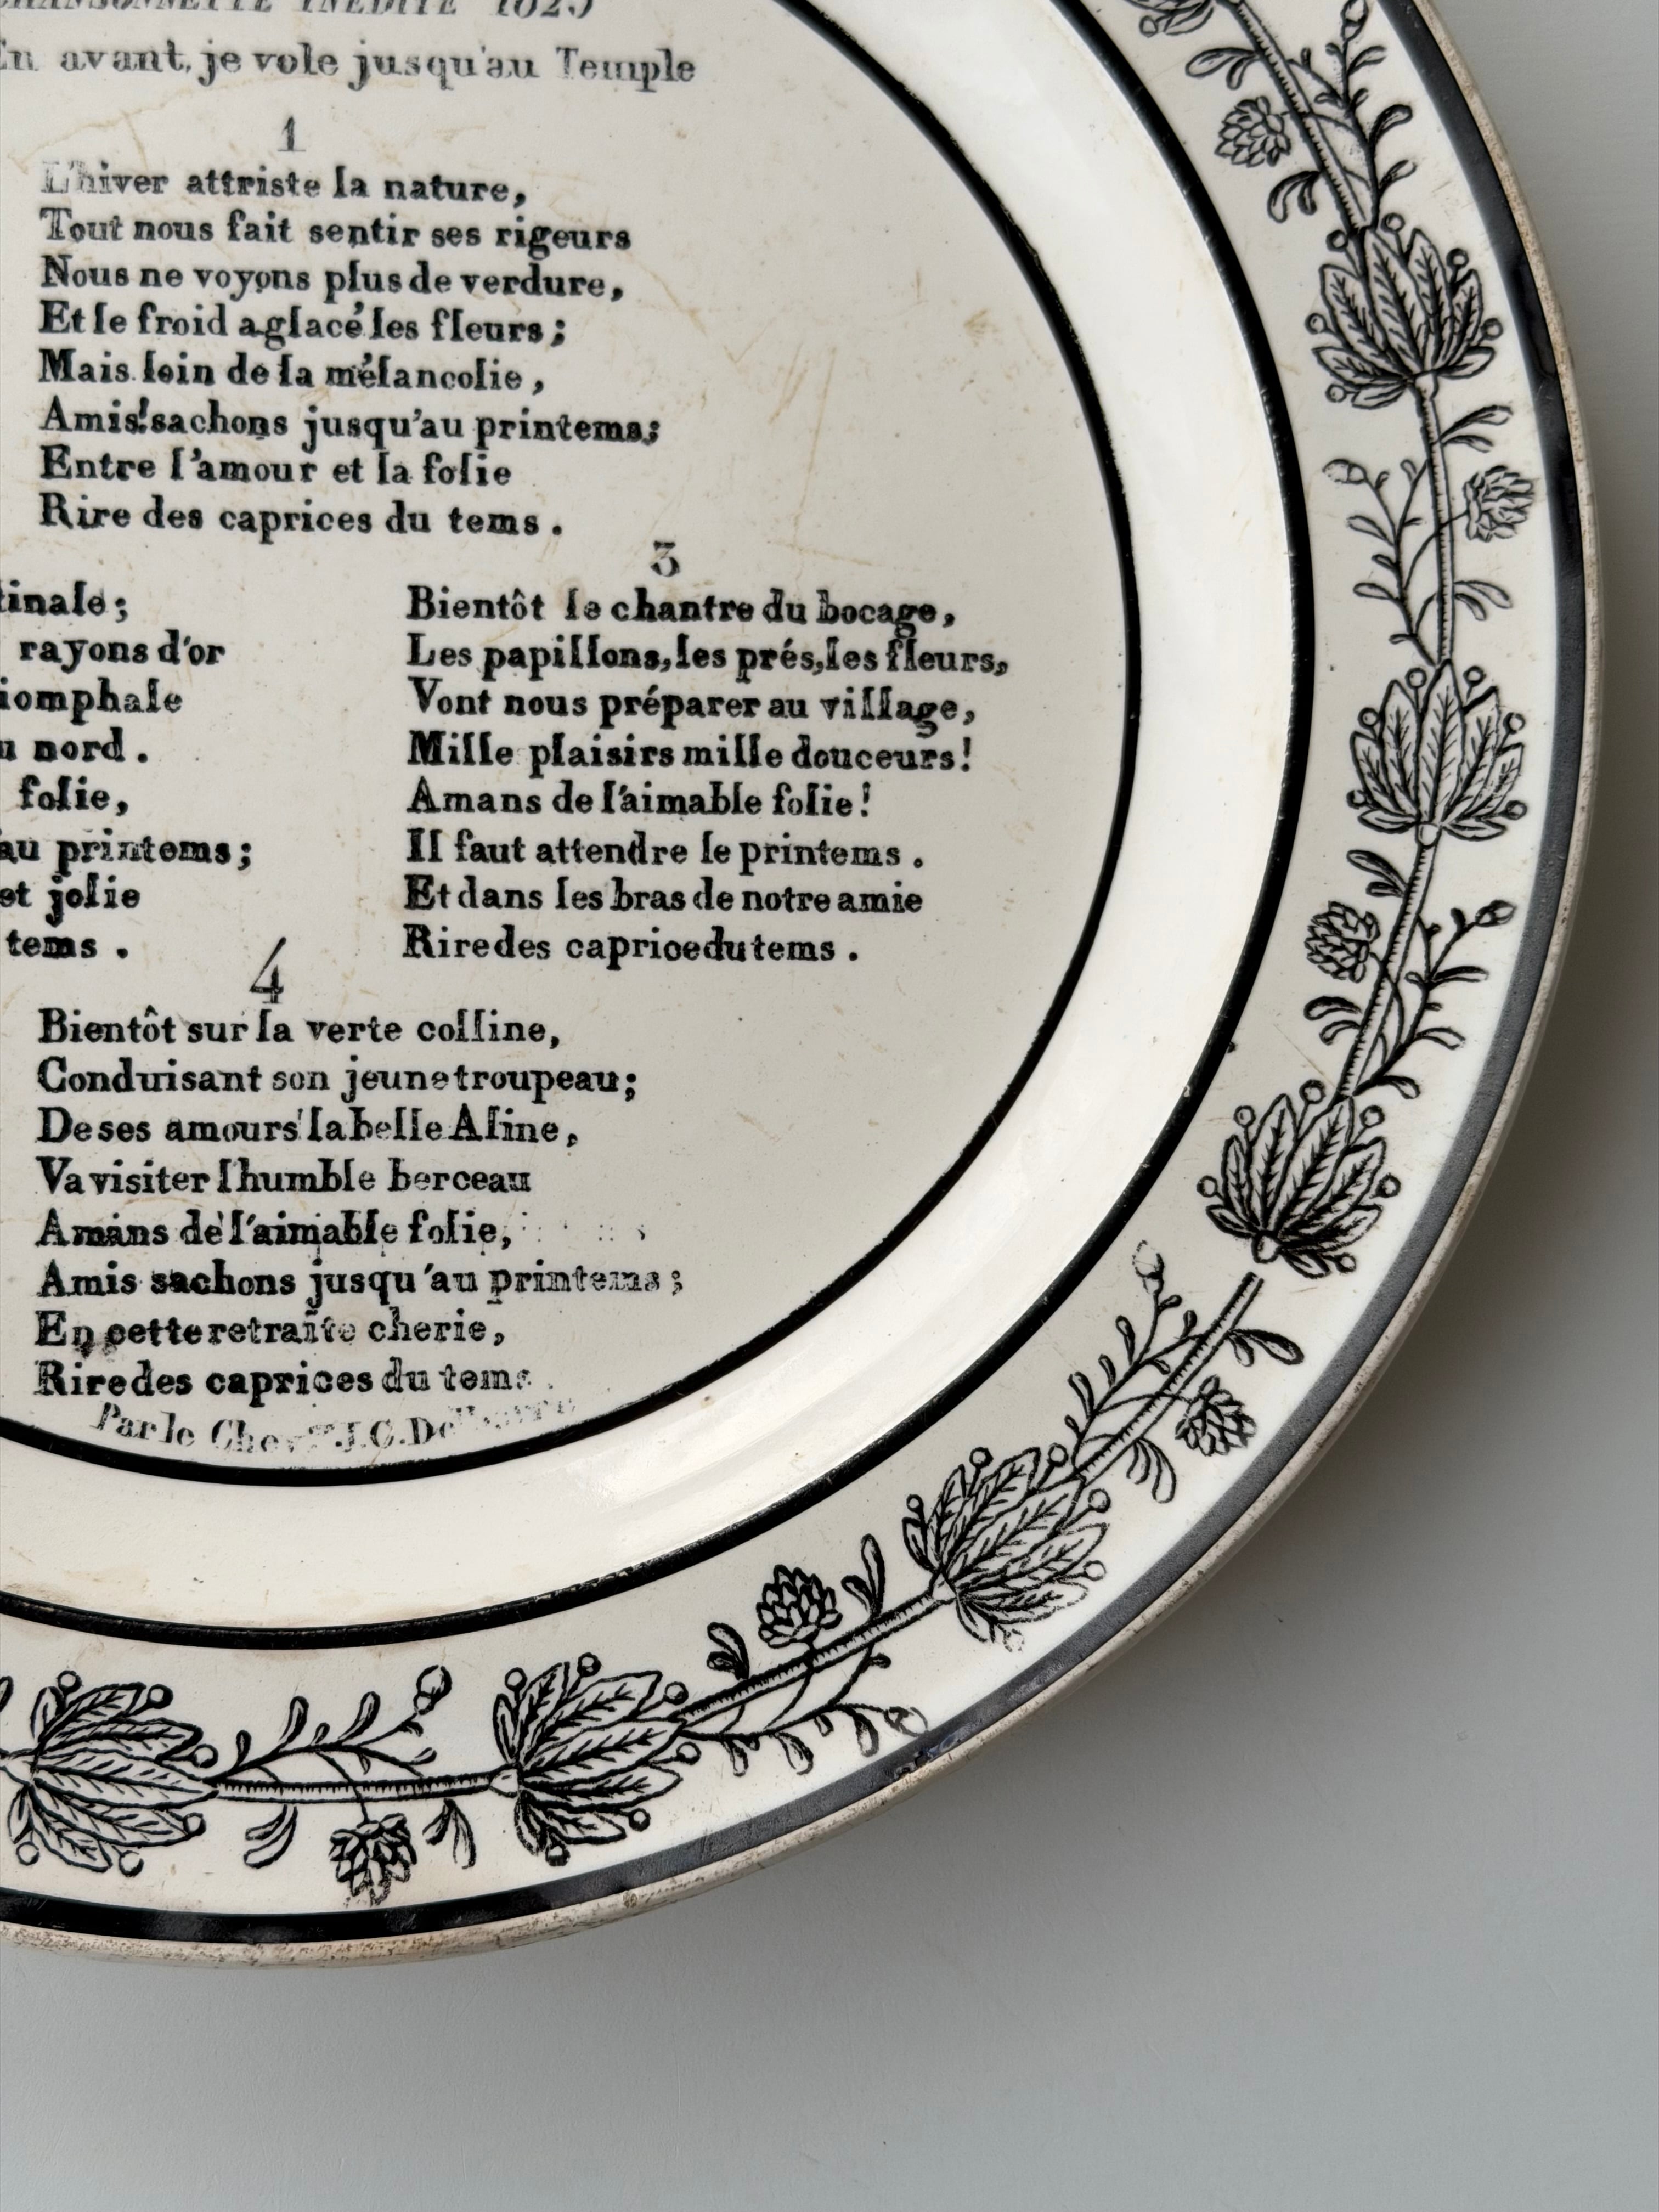 CHANSONNETTE INÉDITE 1825
En avant, je vole jusqu'au Temple
1
L'hiver attriste la nature,
Tout nous fait sentir ses rigeurs
Nous ne voyons plus de verdure,
Et le froid a glacé les fleurs;
Mais loin de la mélancolie,
Amis! sachons jusqu'au printems;
Entre l'amour et la folie
Rire des caprices du tems.
tinale;
rayons d'or
iomphale
nord.
folie,
au printems;
et jolie
tems.
3
Bientôt le chantre du bocage,
Les papillons, les prés, les fleurs,
Vont nous préparer au village,
Mille plaisirs mille douceurs!
Amans de l'aimable folie!
Il faut attendre le printems.
Et dans les bras de notre amie
Rire des caprice du tems.
4
Bientôt sur la verte colline,
Conduisant son jeune troupeau;
De ses amours la belle Aline,
Va visiter l'humble berceau
Amans de l'aimable folie,
Amis sachons jusqu'au printems;
En cette retraite cherie,
Rire des caprices du tems.
Par le Chevr. J.C. De